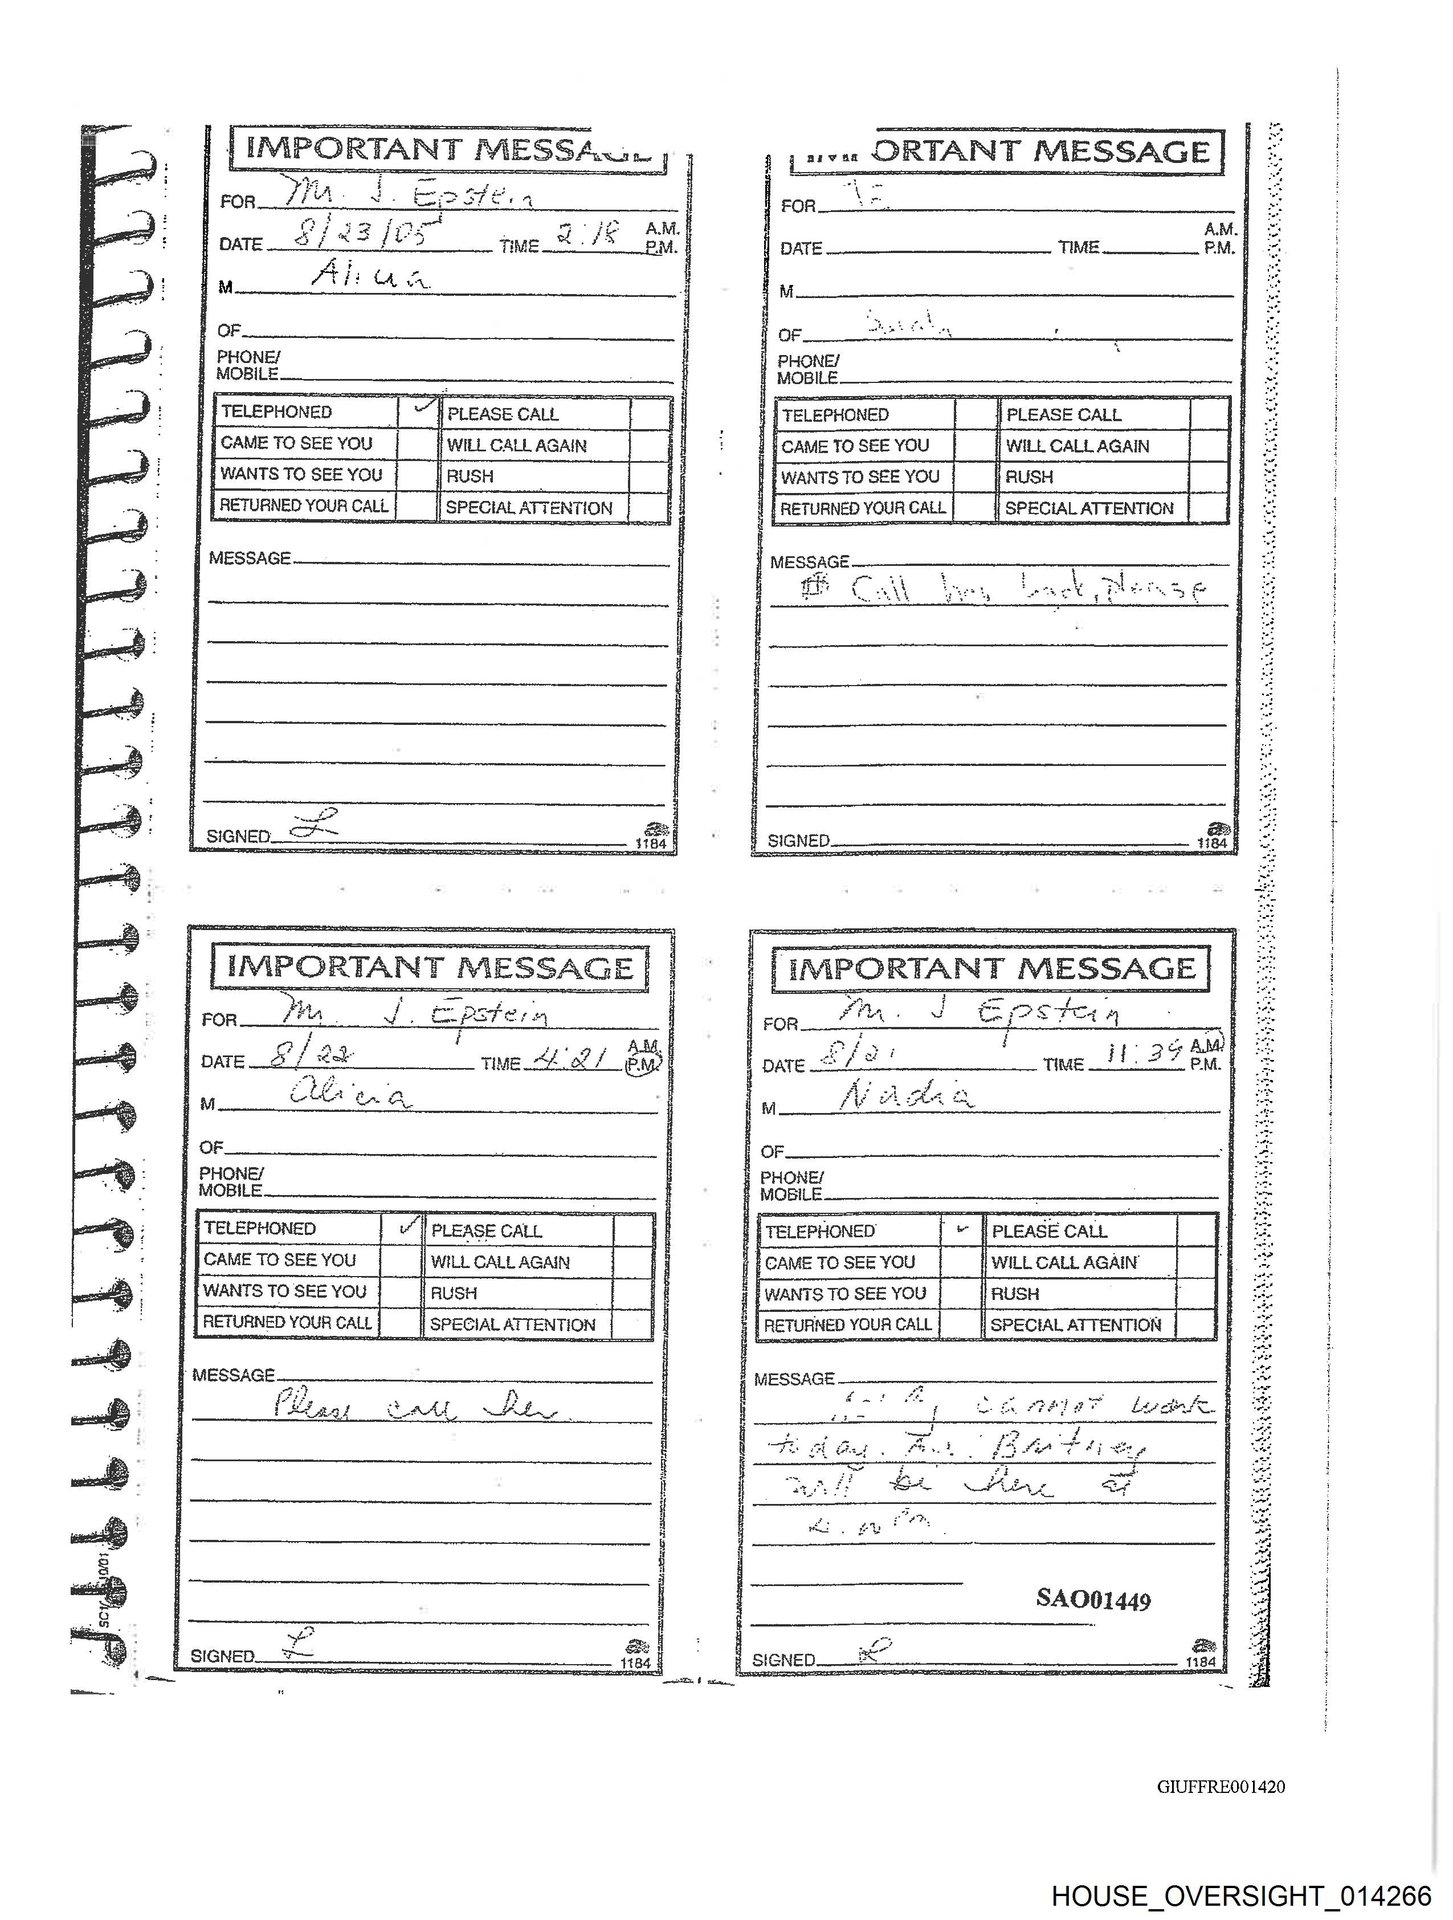 IMPORTANT MESSAGE
FOR Mr. J. Epstein
DATE 8/23/05 TIME 2:18 A.M. P.M.
M Alicia
OF
PHONE/
MOBILE
TELEPHONED ✓ PLEASE CALL
CAME TO SEE YOU WILL CALL AGAIN
WANTS TO SEE YOU RUSH
RETURNED YOUR CALL SPECIAL ATTENTION
MESSAGE
SIGNED L
1184
ORTANT MESSAGE
FOR
DATE TIME A.M. P.M.
M
OF
PHONE/
MOBILE
TELEPHONED PLEASE CALL
CAME TO SEE YOU WILL CALL AGAIN
WANTS TO SEE YOU RUSH
RETURNED YOUR CALL SPECIAL ATTENTION
MESSAGE
Call back, please
SIGNED
1184
IMPORTANT MESSAGE
FOR Mr. J. Epstein
DATE 8/22 TIME 4:21 A.M. P.M.
M Alicia
OF
PHONE/
MOBILE
TELEPHONED ✓ PLEASE CALL
CAME TO SEE YOU WILL CALL AGAIN
WANTS TO SEE YOU RUSH
RETURNED YOUR CALL SPECIAL ATTENTION
MESSAGE
Please call her
SIGNED L
1184
IMPORTANT MESSAGE
FOR Mr. J Epstein
DATE 8/21 TIME 11:39 A.M. P.M.
M Nadia
OF
PHONE/
MOBILE
TELEPHONED ✓ PLEASE CALL
CAME TO SEE YOU WILL CALL AGAIN
WANTS TO SEE YOU RUSH
RETURNED YOUR CALL SPECIAL ATTENTION
MESSAGE
cannot work
today. Britney
will be here at
SAO01449
SIGNED L
1184
GIUFFRE001420
HOUSE_OVERSIGHT_014266